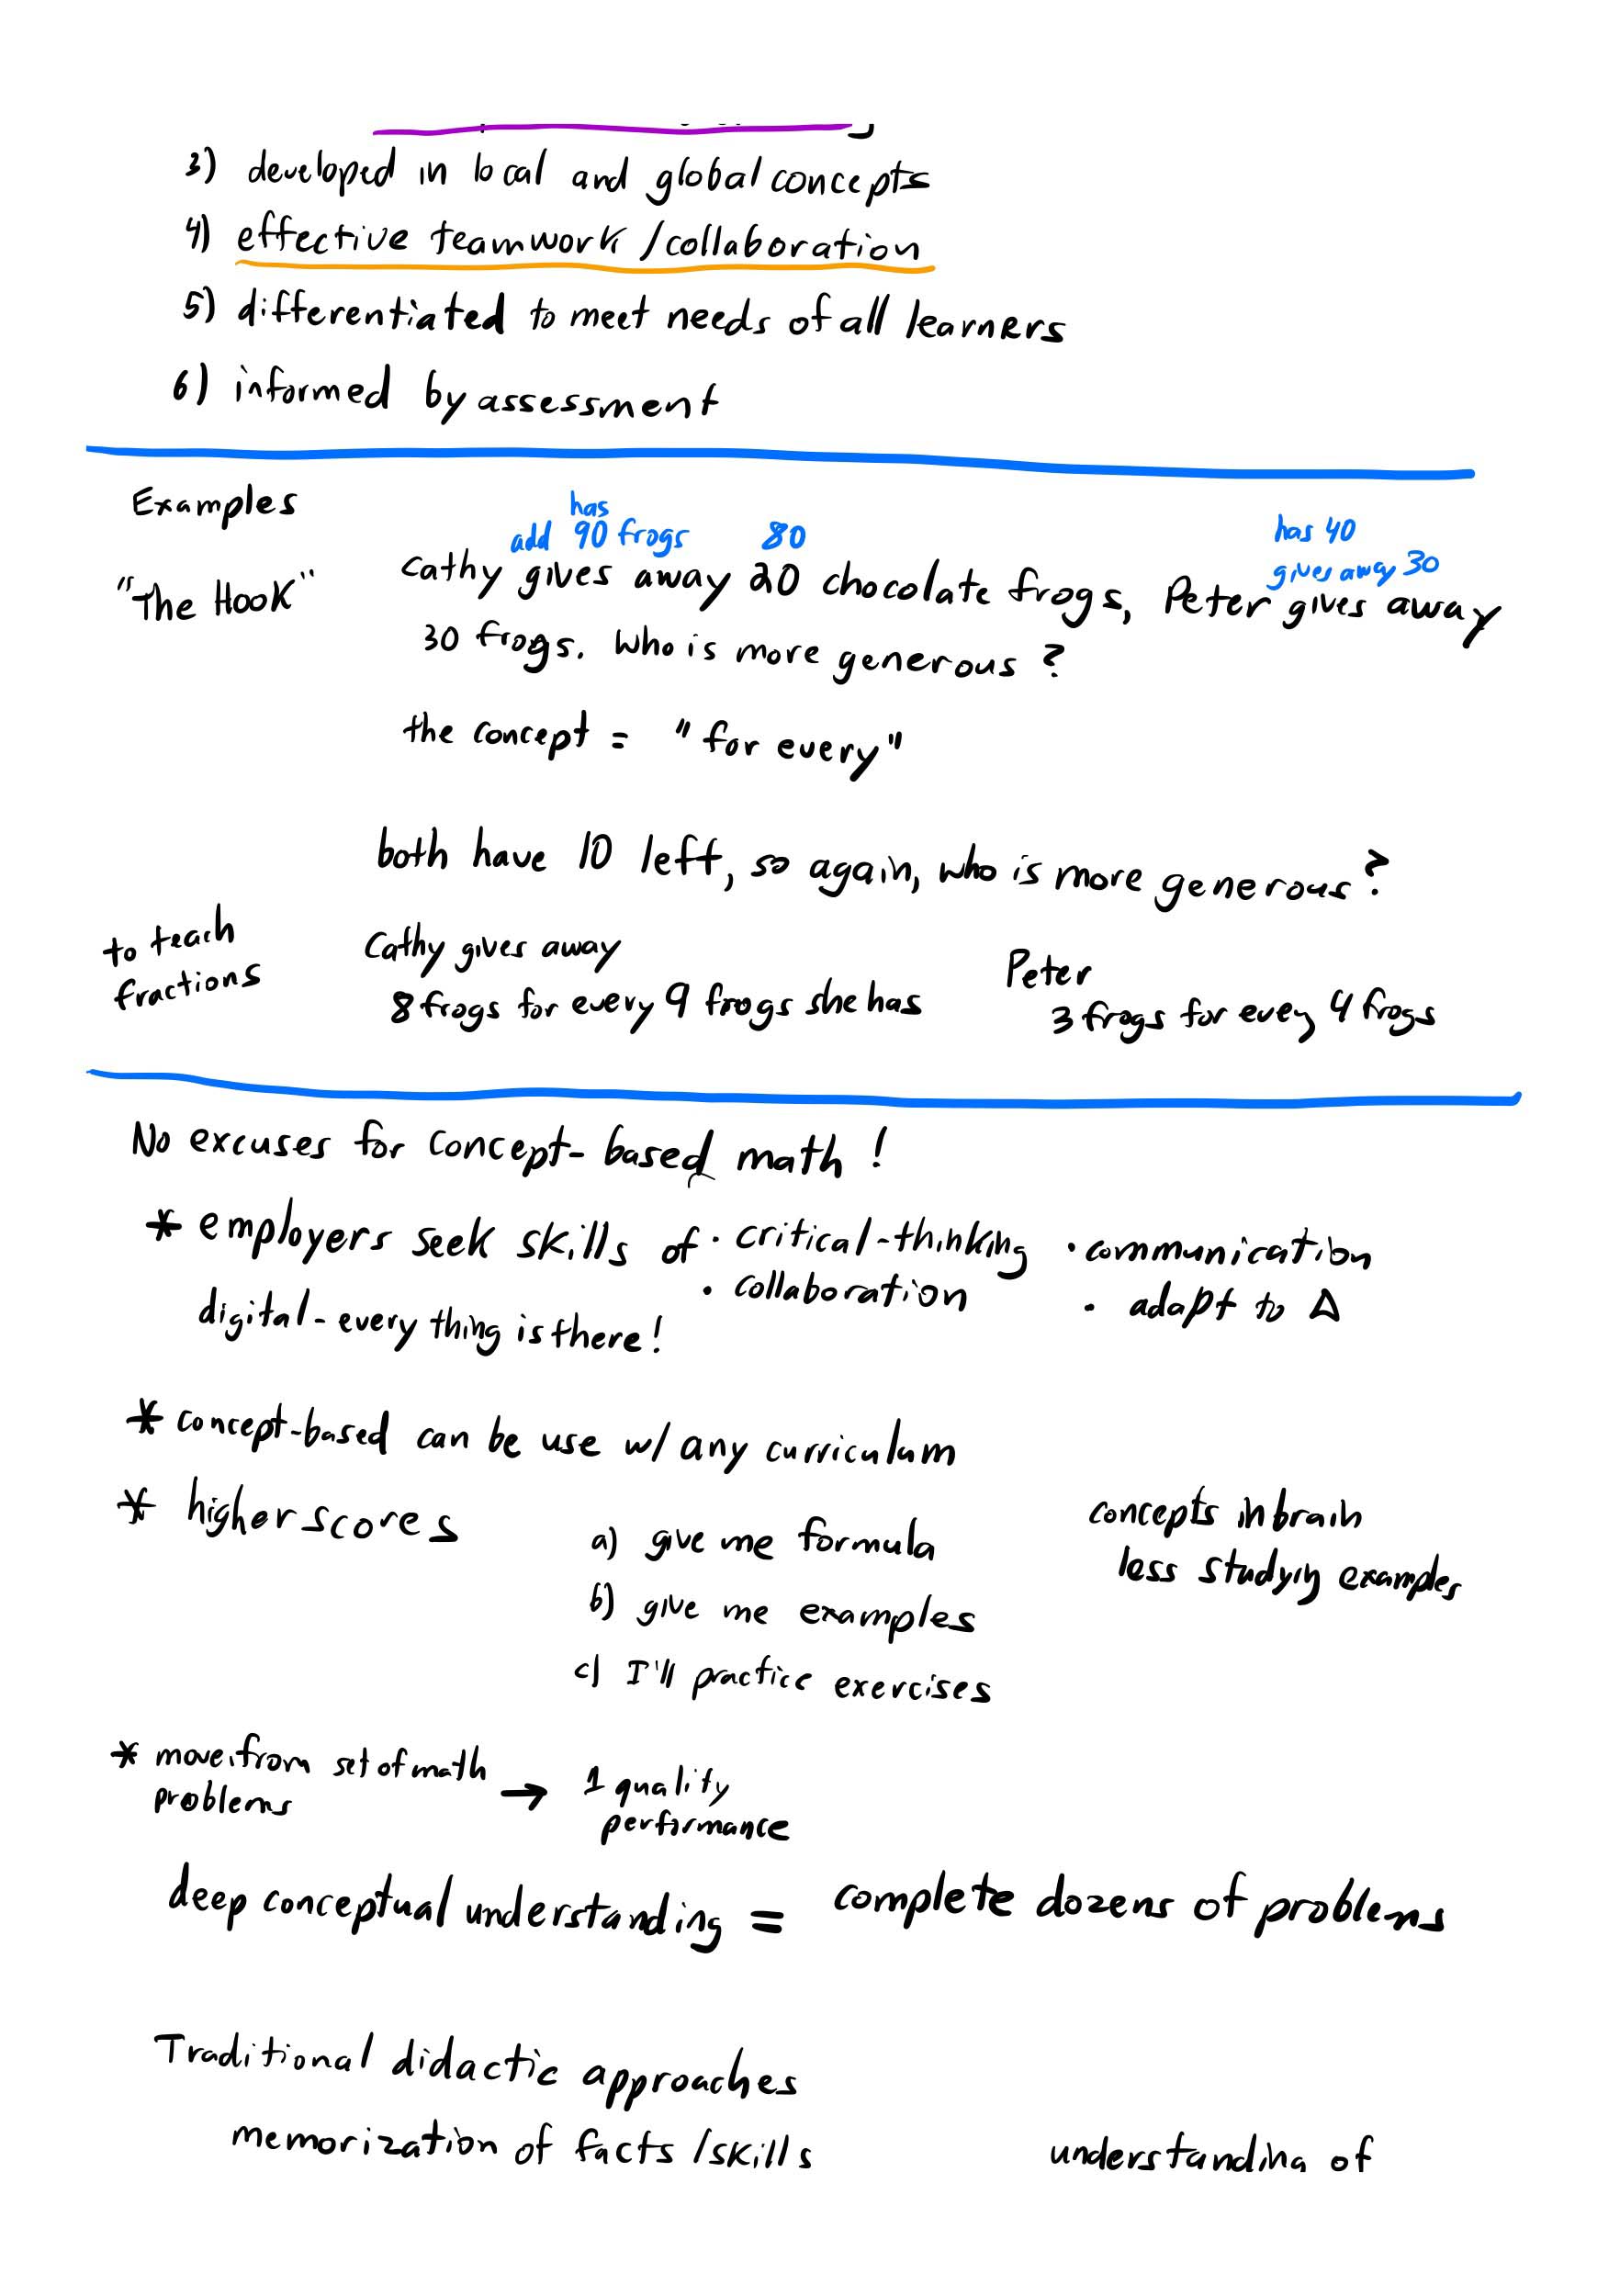 3) developed in local and global concepts
4) effective teamwork /collaboration
5) differentiated to meet needs of all learners
6) informed by assessment
Examples
has
add 90 frogs 80
has 40
gives away 30
"The Hook"
Cathy gives away 20 chocolate frogs, Peter gives away
30 frogs. Who is more generous ?
the concept = "for every"
both have 10 left, so again, who is more generous?
to teach
fractions
Cathy gives away
8 frogs for every 9 frogs she has
Peter
3 frogs for evey 4 frogs
No excuses for concept-based math !
* employers seek skills of · critical-thinking · communication
· collaboration · adapt to Δ
digital - every thing is there!
* concept-based can be use w/ any curriculum
* higher scores
a) give me formula
b) give me examples
c) I'll practice exercises
concepts in brain
less studying examples
* move from set of math
problems → 1 quality
performance
deep conceptual understanding = complete dozens of problems
Traditional didactic approaches
memorization of facts /skills understanding of